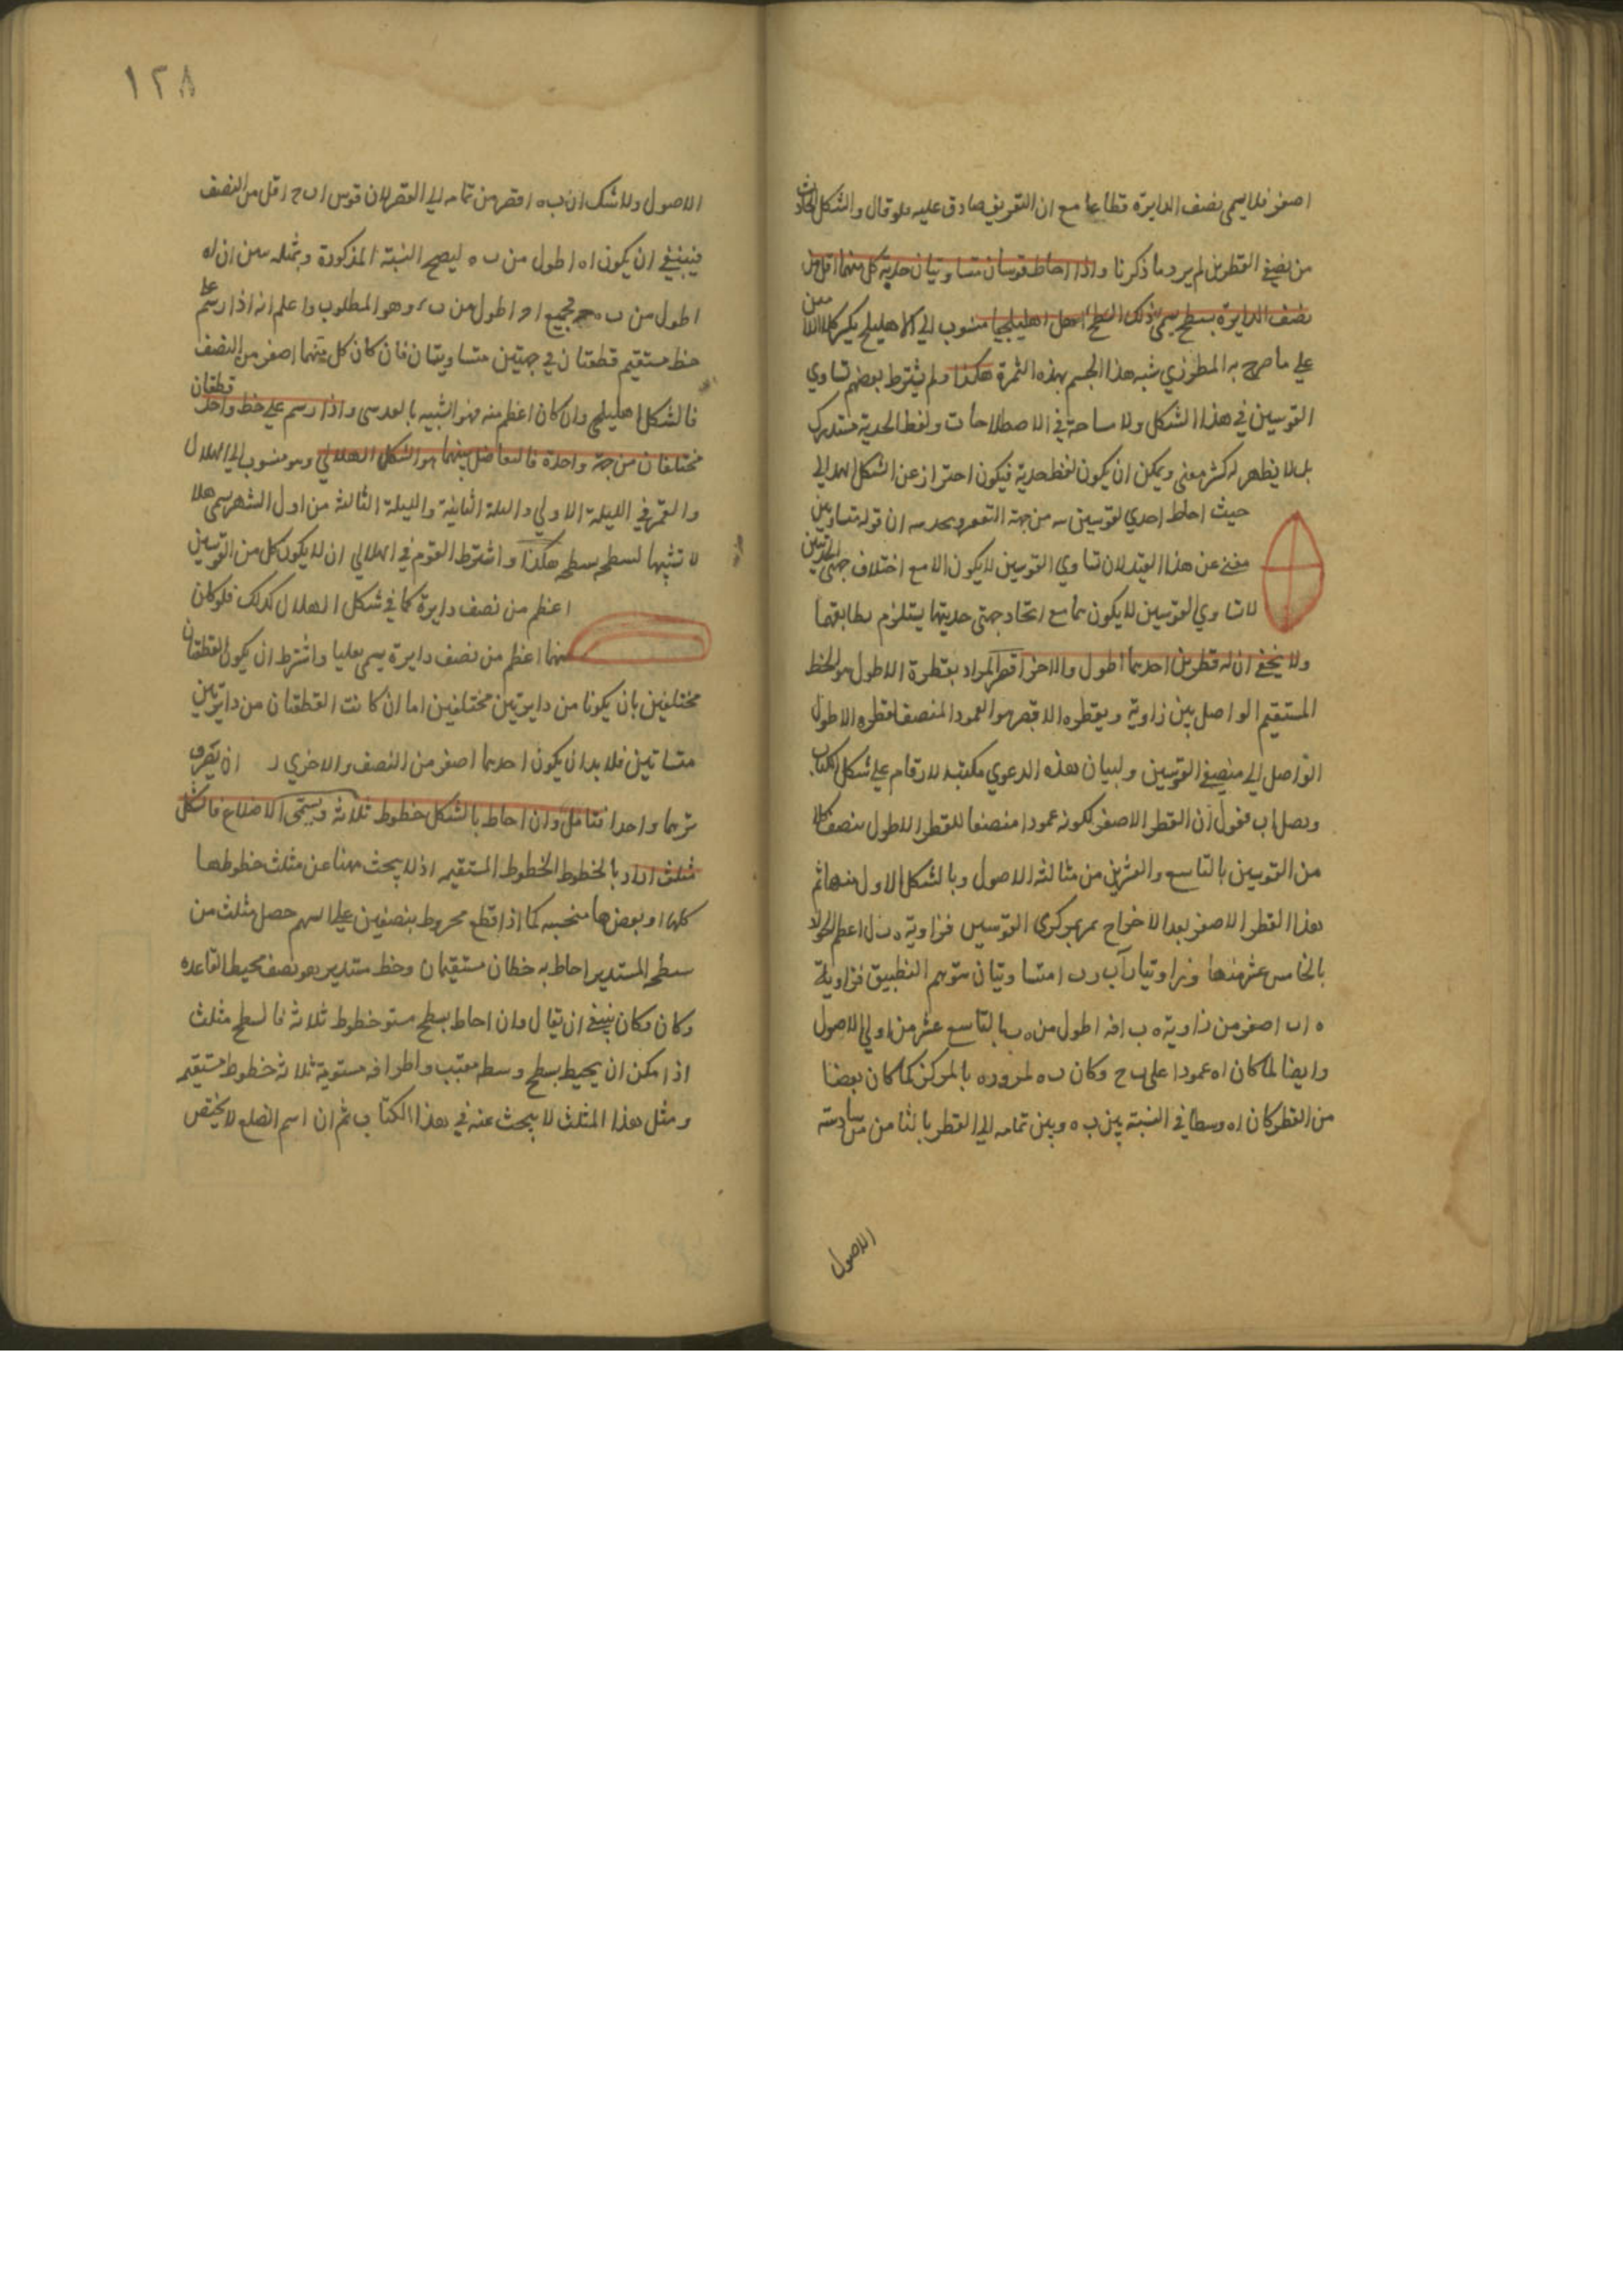 اصغر فلا يسمى نصف الدايرة قطاعا مع ان التعريف صادق عليه فلو قال والشكل الحادث
من نصفي القطرين لم يرد ما ذكرنا واذا احاط قوسان متساويتان حدبة كل منهما اقل من
نصف الدايرة بسطح يسمى ذلك السطح اهليلجيا منسوب الى الاهليلج بكسر
على ما صرح به المطرزي شبه هذا الجسم بهذه الثمرة هكذا ولم يشترط بعضهم تساوي
القوسين في هذا الشكل ولا مساحة في الاصطلاحات ولفظ الحدبة مستدرك
بل لا يظهر له كثر معنى ويمكن ان يكون لفظ حدبة فيكون احتراز عن الشكل الهلالي
حيث احاط احدي القوسين به من جهة التقعر ان قوله متساويتين
مغني عن هذا القيد لان تساوي القوسين لا يكون الا مع اختلاف جهتي الحدبتين
لا تساوي القوسين لا يكون مع اتحاد جهتي حدبتهما يستلزم تطابقهما
ولا يخفى ان له قطرين احدهما اطول والاخر اقصر المراد بقطرة الاطول هو الخط
المستقيم الواصل بين زاوية وبقطره الاقصر هو العمود المنصف لقطره الاطول
الواصل الى منصفي القوسين ولبيان هذه الدعوي الارقام على شكل الكتاب
ونصل اب فنقول ان القطر الاصغر لكونه عمودا منصفا للقطر الاطول ينصف كلا
من القوسين بالتاسع والعشرين من ثالثة الاصول وبالشكل الاول منها ثم
هذا القطر الاصغر بعد الاخراج يمر بمركزي القوسين فزاوية
بالخامس عشر منها وزاويتا متساويتان بتوهم التطبيق فزاوية
ه ا ب اصغر من زاوية ه ب ا فه ا اطول من ه ب بالتاسع عشر من اولى الاصول
وايضا لما كان اه عمودا على ب ح وكان ب ه لمروره بالمركز كما كان بعضا
من القطر كان اه وسطا في النسبة بين ب ه وبين تمامه الى القطر بالثامن من سادسة
الاصول
١٢٨
الاصول ولا شك ان ب ه اقصر من تمامه الى القطر لان قوس ا ب ح اقل من النصف
فينبغي ان يكون اه اطول من ب ه ليصح النسبة المذكورة وبمثله يبين ان
اطول من ب ه فجميع اطول من وهو المطلوب واعلم انه اذا رسم على
خط مستقيم قطعتان في جهتين متساويتان فان كان كل منهما اصغر من النصف
فالشكل اهليلجي وان كان اعظم منه فهو الشبيه بالعدسي واذا رسم على خط واحد قطعتان
مختلفتان من جهة واحدة فالتفاضل بينهما هو الشكل الهلالي وهو منسوب الى الهلال
والقمر في الليلة الاولي والليلة الثانية والليلة الثالثة من اول الشهر يسمى هلا
لا تشبيها لسطحه بسطحه هكذا واشترط القوم في الهلالي ان لا يكون كل من القوسين
اعظم من نصف دايرة كما في شكل الهلال كذلك فلو كان
منهما اعظم من نصف دايرة يسمى نعليا واشترط ان يكون القطعتان
مختلفين بان يكونا من دايرتين مختلفتين اما ان كانت القطعتان من دايرتين
متساتين فلا بد ان يكون احدهما اصغر من النصف والاخري
واحدا فتامل وان احاط بالشكل خطوط ثلاثة ويسمى الاضلاع فالشكل
مثلث اراد بالخطوط الخطوط المستقيمة اذ لا يبحث ههنا عن مثلث خطوطها
كلها او بعضها منحنية كما اذا قطع مخروط بنصفين على السهم حصل مثلث من
سطحه المستدير احاط به خطان مستقيمان وخط مستدير هو نصف محيط القاعده
وكان وكان ينبغي ان يقال وان احاط بسطح مستو خطوط ثلاثة فالسطح مثلث
اذ امكن ان يحيط بسطح وسطه مقبب واطرافه مستوية ثلاثة خطوط مستقيمة
ومثل هذا المثلث لا يبحث عنه في هذا الكتاب ثم ان اسم الضلع لا يختص